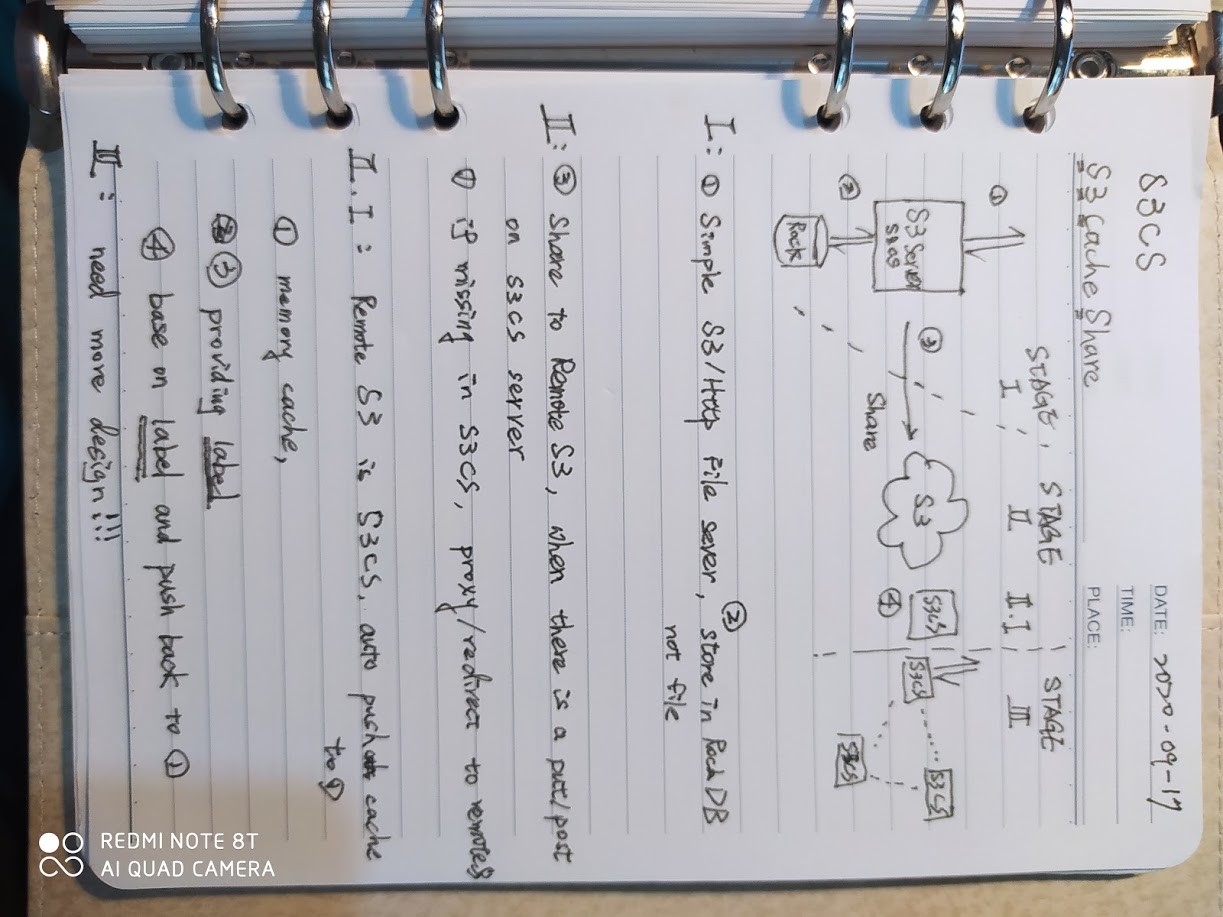 DATE: 2020-09-17
TIME:
PLACE:
S3CS
S3 Cache Share
STAGE, STAGE | STAGE
I, II II.I | III
①
S3 Server
②
Rocks
③
Share
S3
S3CS
④
S3CS
S3CS
S3CS
I: ① Simple S3/Http File sever, ② store in RockDB
not file
II: ③ Share to Remote S3, when there is a put/post
on S3CS server
① if missing in S3CS, proxy/redirect to remotes
II.I: Remote S3 is S3CS, auto push cache
to ①
① memory cache,
③ providing label
④ base on label and push back to ①
III: need more design!!!
REDMI NOTE 8T
AI QUAD CAMERA